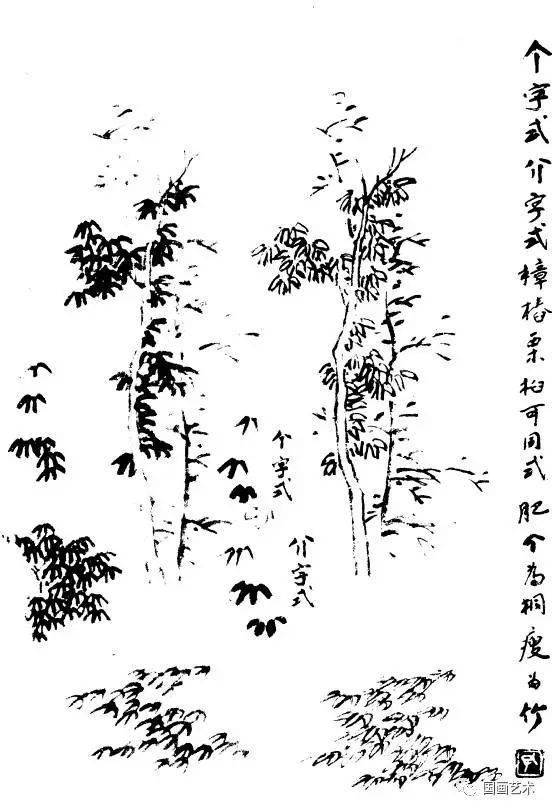 个字式介字式樟椿栗柏可同式 肥个为桐瘦为竹
个字式
介字式
国画艺术